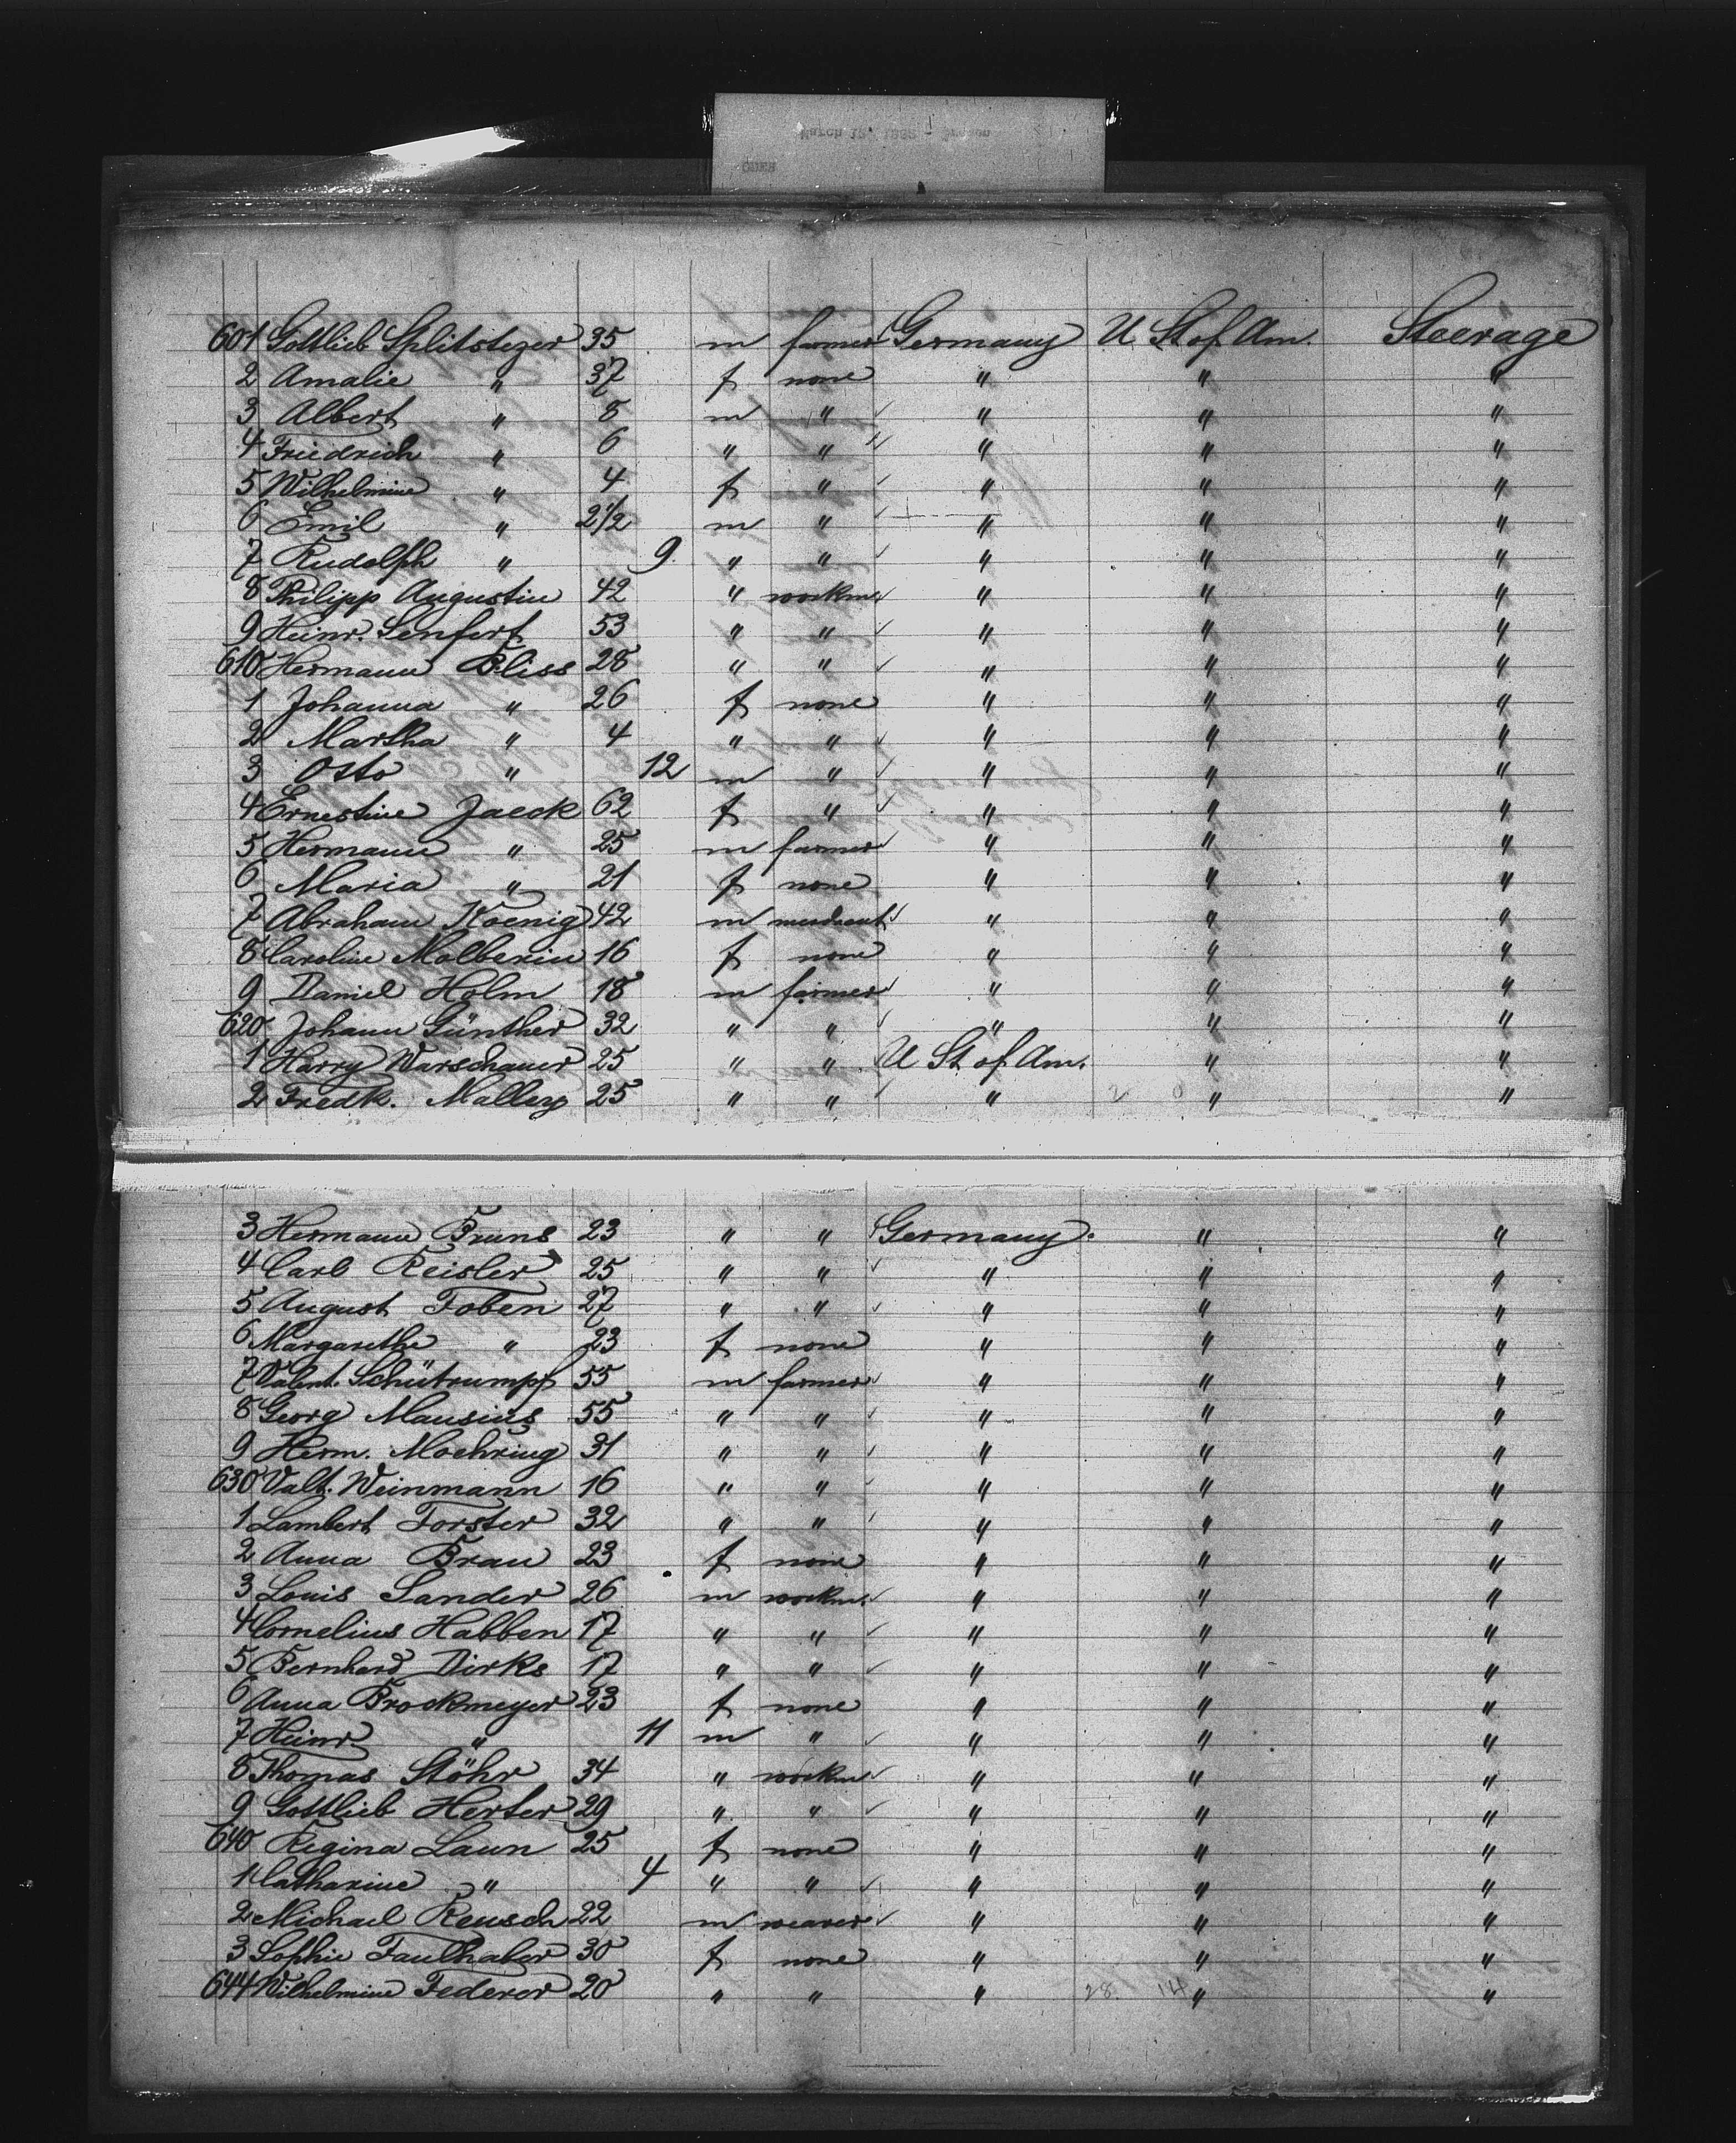 601 Gottlieb Splitstezer 35 m farmer Germany U St of Am. Steerage
2 Amalie " 37 f none " " "
3 Albert " 8 m " " " "
4 Friedrich " 6 " " " " "
5 Wilhelmine " 4 f " " " "
6 Emil " 2 1/2 m " " " "
7 Rudolph " 9. " " " " "
8 Philipp Augustin 42 " workm " " "
9 Heinr. Senfert 53 " " " " "
610 Hermann Bliss 28 " " " " "
1 Johanna " 26 f none " " "
2 Martha " 4 " " " " "
3 Otto " 12 m " " " "
4 Ernestine Jaeck 62 f " " " "
5 Hermann " 25 m farmer " " "
6 Maria " 21 f none " " "
7 Abraham Koenig 42 m merchant " " "
8 Caroline Malberin 16 f none " " "
9 Daniel Holm 18 m farmer " " "
620 Johann Günther 32 " " " " "
1 Harry Warschauer 25 " " U St of Am. " "
2 Fredk. Mallery 25 " " " " "
3 Hermann Bruns 23 " " Germany. " "
4 Carl Reisler 25 " " " " "
5 August Toben 27 " " " " "
6 Margarethe " 23 f none " " "
7 Valent. Schütrumpf 55 m farmer " " "
8 Georg Mausius 55 " " " " "
9 Herm. Moehring 31 " " " " "
630 Valt. Weinmann 16 " " " " "
1 Lambert Forster 32 " " " " "
2 Anna Brau 23 f none " " "
3 Louis Sander 26 m workm. " " "
4 Cornelius Habben 17 " " " " "
5 Bernhard Dirks 17 " " " " "
6 Anna Brockmeyer 23 f none " " "
7 Heinr. " 11 m " " " "
8 Thomas Stöhr 34 " workm " " "
9 Gottlieb Herter 29 " " " " "
640 Regina Laun 25 f none " " "
1 Catharine " 4 " " " " "
2 Michael Reusch 22 m weaver " " "
3 Sophie Faulhaber 30 f none " " "
644 Wilhelmine Federer 20 " " " 28. 14 " "